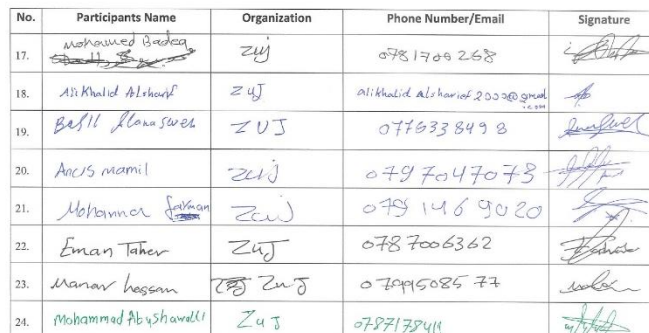 No. Participants Name Organization Phone Number/Email Signature
17. Mohamed Badea ZUJ 0781709268
18. Ali Khalid Alsharif ZUJ alikhalid Alsharief2000@gmail.com
19. Basil ZUJ 0775338498
20. Anas mamil ZUJ 0797047073
21. Mohannad ZUJ 0791469020
22. Eman Taher ZUJ 0787006362
23. Manar hassan ZUJ 0799508577
24. Mohammad Abushawalli ZUJ 0787178411